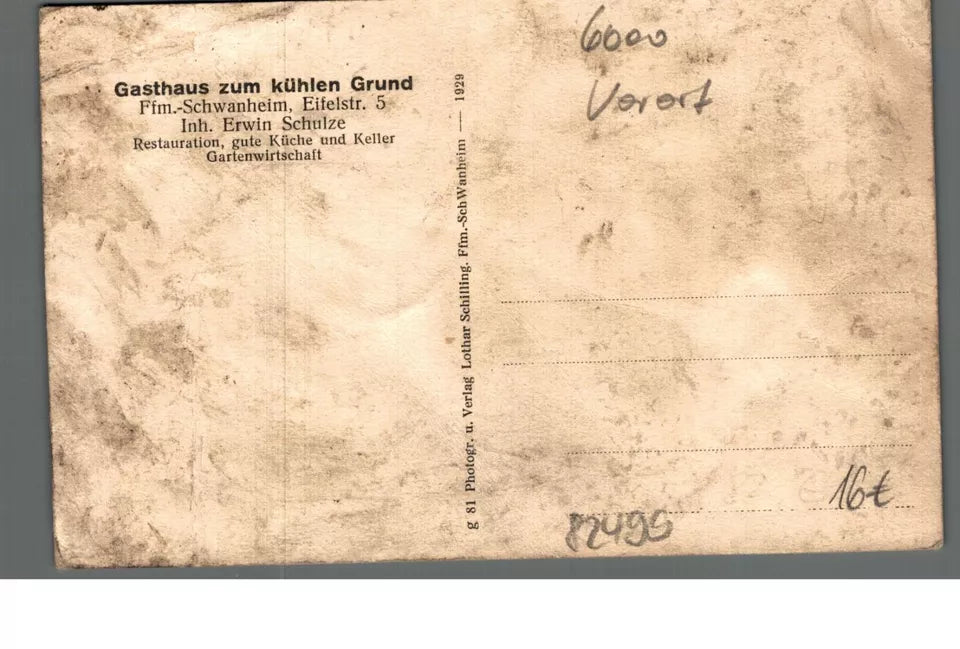 Gasthaus zum kühlen Grund
Ffm.-Schwanheim, Eifelstr. 5
Inh. Erwin Schulze
Restauration, gute Küche und Keller
Gartenwirtschaft
g 81 Photogr. u. Verlag Lothar Schilling. Ffm.-SchWanheim — 1929
6000
Vorort
16€
82499